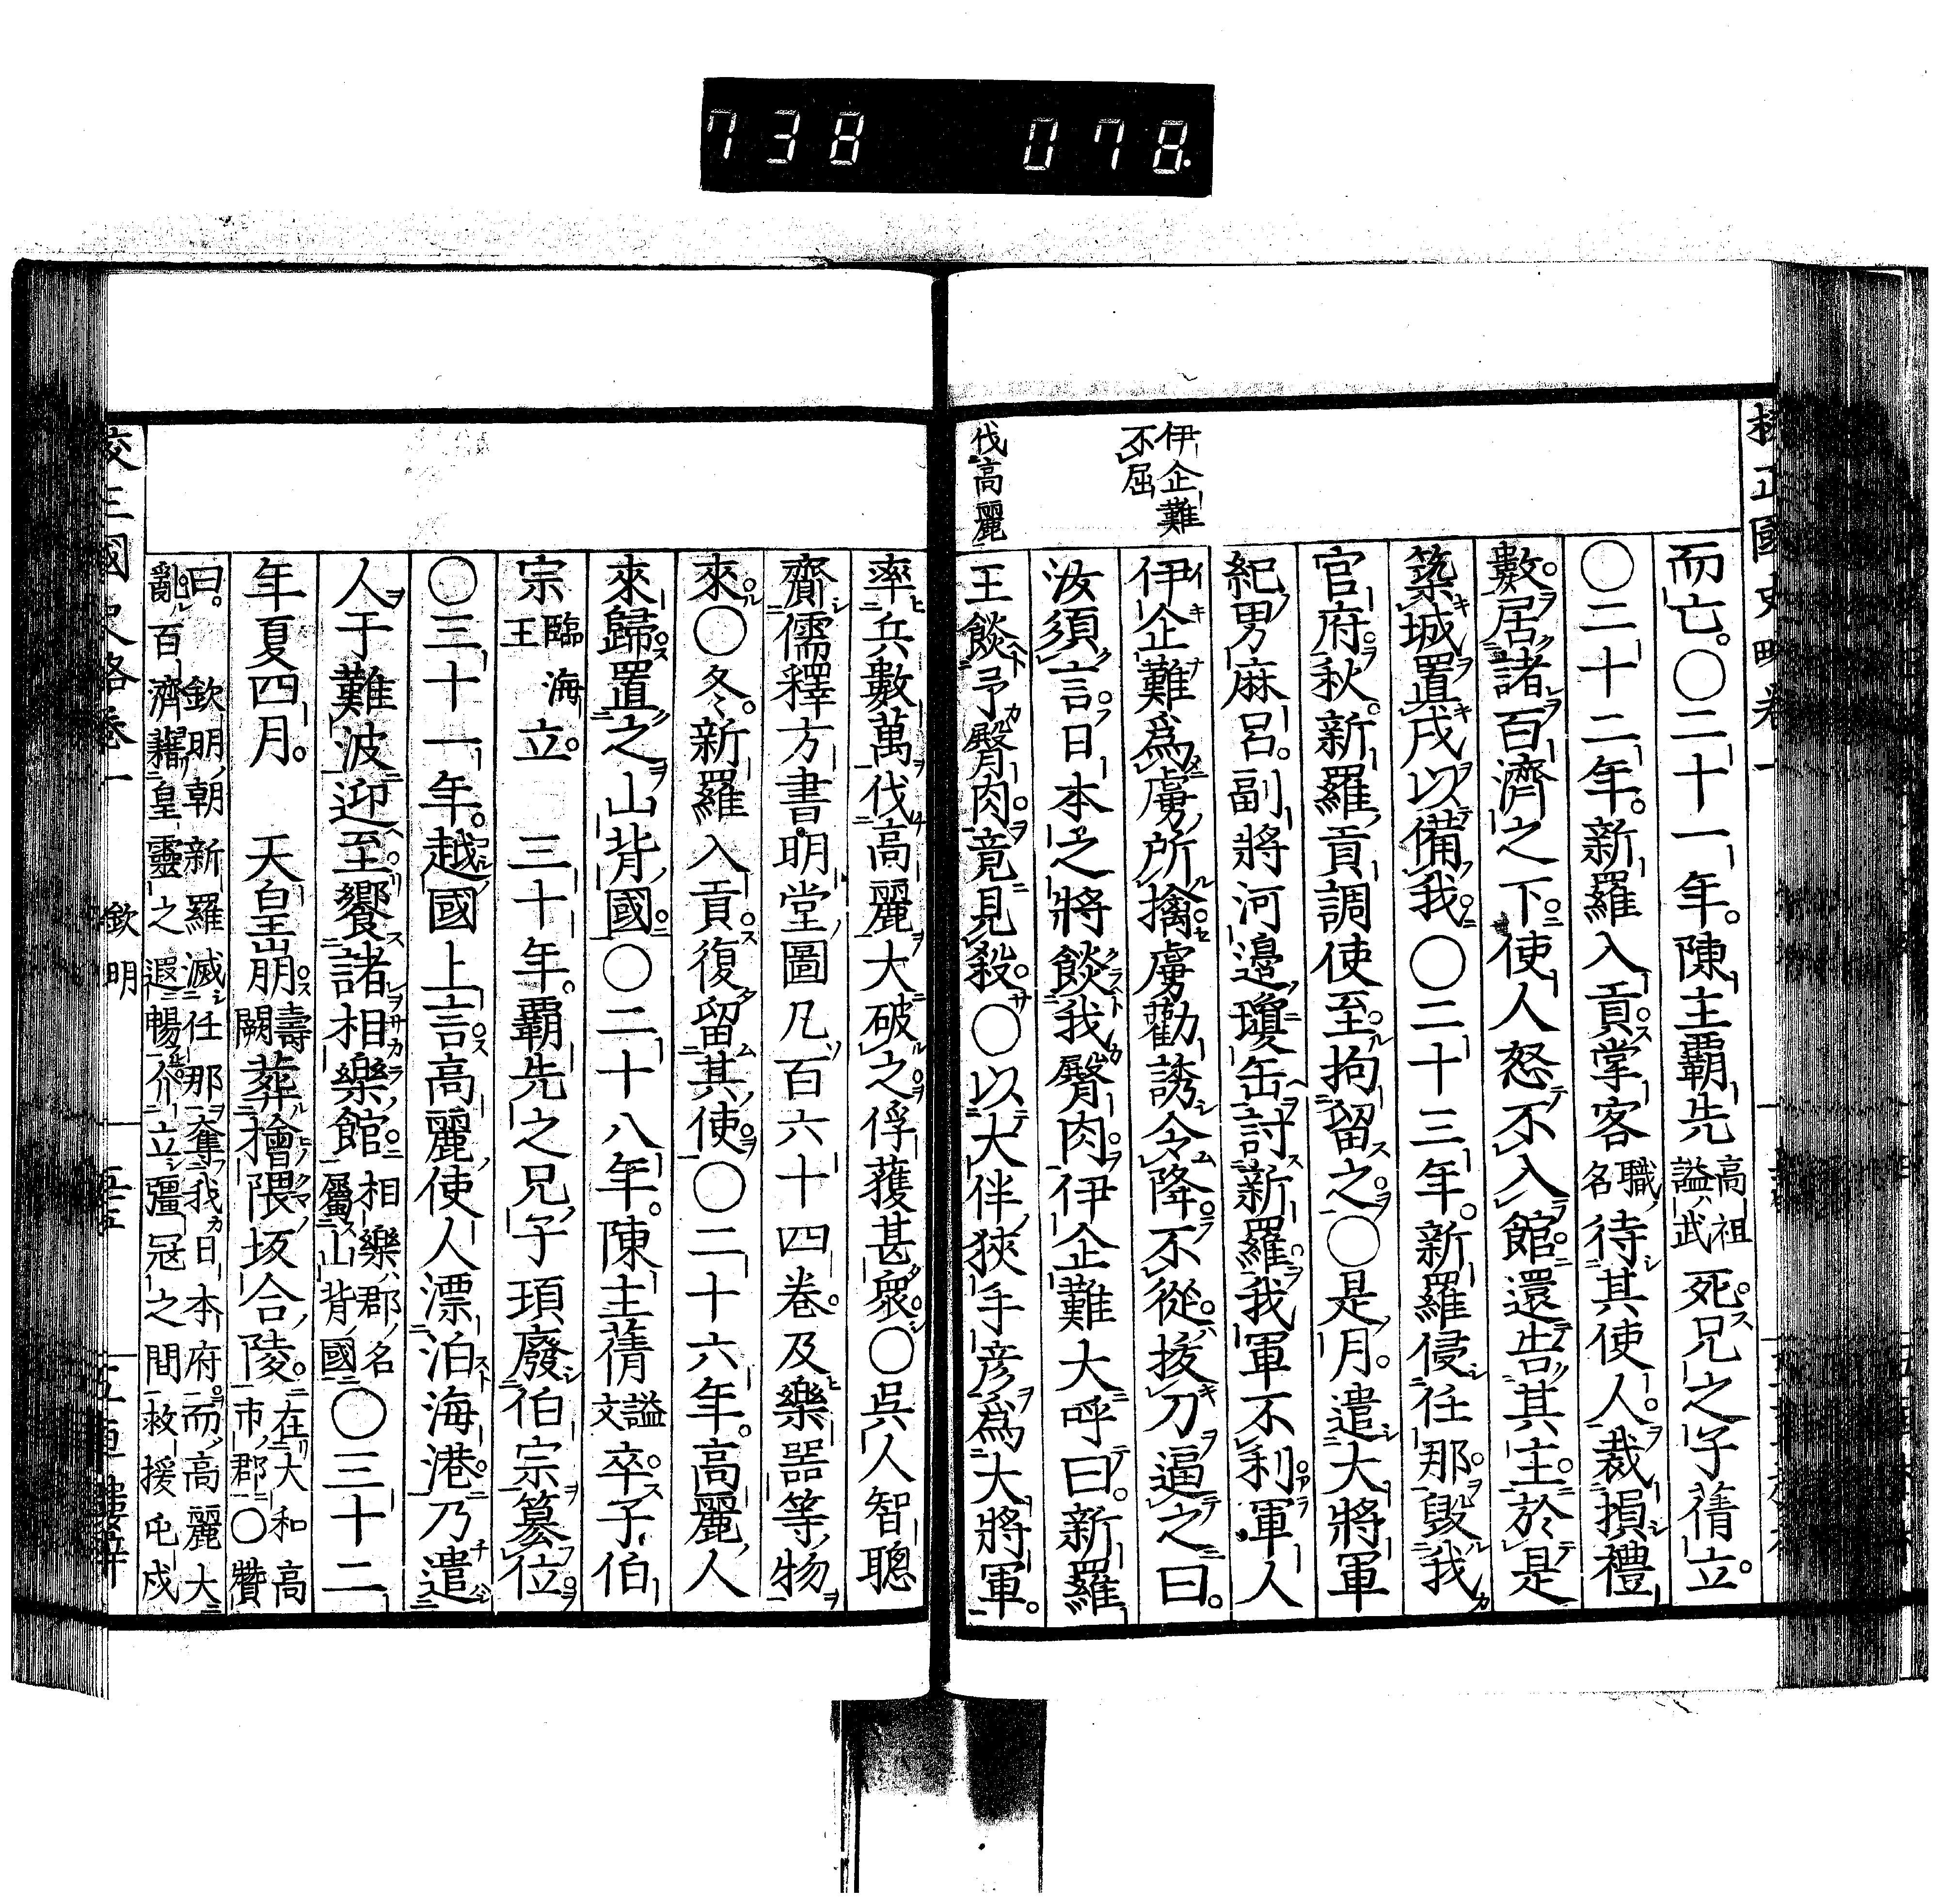 738 078
伊企難
不屈
伐高麗
而亡。〇二十一年。陳主霸先高祖謚武死。兄之子蒨立。
〇二十二年。新羅入貢。掌客職名待其使人。裁損禮
數。居諸百濟之下。使人怒不入館。還告其主。於是
築城置戍以備我。〇二十三年。新羅侵任那。毀我
官府。秋。新羅貢調使至。拘留之。〇是月。遣大將軍
紀男麻呂。副將河邊瓊缶討新羅。我軍不利。軍人
伊企難爲虜所擒。虜勸誘令降。不從。拔刀逼之曰。
汝須言。日本之將餤我臀肉。伊企難大呼曰。新羅
王餤予臀肉。竟見殺。〇以大伴狹手彦爲大將軍。
率兵數萬伐高麗。大破之。俘獲甚衆。〇吳人智聰
齎儒釋方書。明堂圖凡百六十四卷。及樂噐等物
來。〇冬。新羅入貢。復留其使。〇二十六年。高麗人
來歸。置之山背國。〇二十八年。陳主蒨謚文卒。子伯
宗臨海王立。 三十年。霸先之兄子頊廢伯宗簒位。
〇三十一年。越國上言。高麗使人漂泊海港。乃遣
人于難波迎至。饗諸相樂館。相樂郡名屬山背國〇三十二
年夏四月。 天皇崩。壽闕葬檜隈坂合陵。在大和高市郡〇贊
曰。 欽明朝新羅滅任那。奪我日本府。而高麗大
亂。百濟藉皇靈之遐暢。介立彊冦之間。救援屯戍
欽明